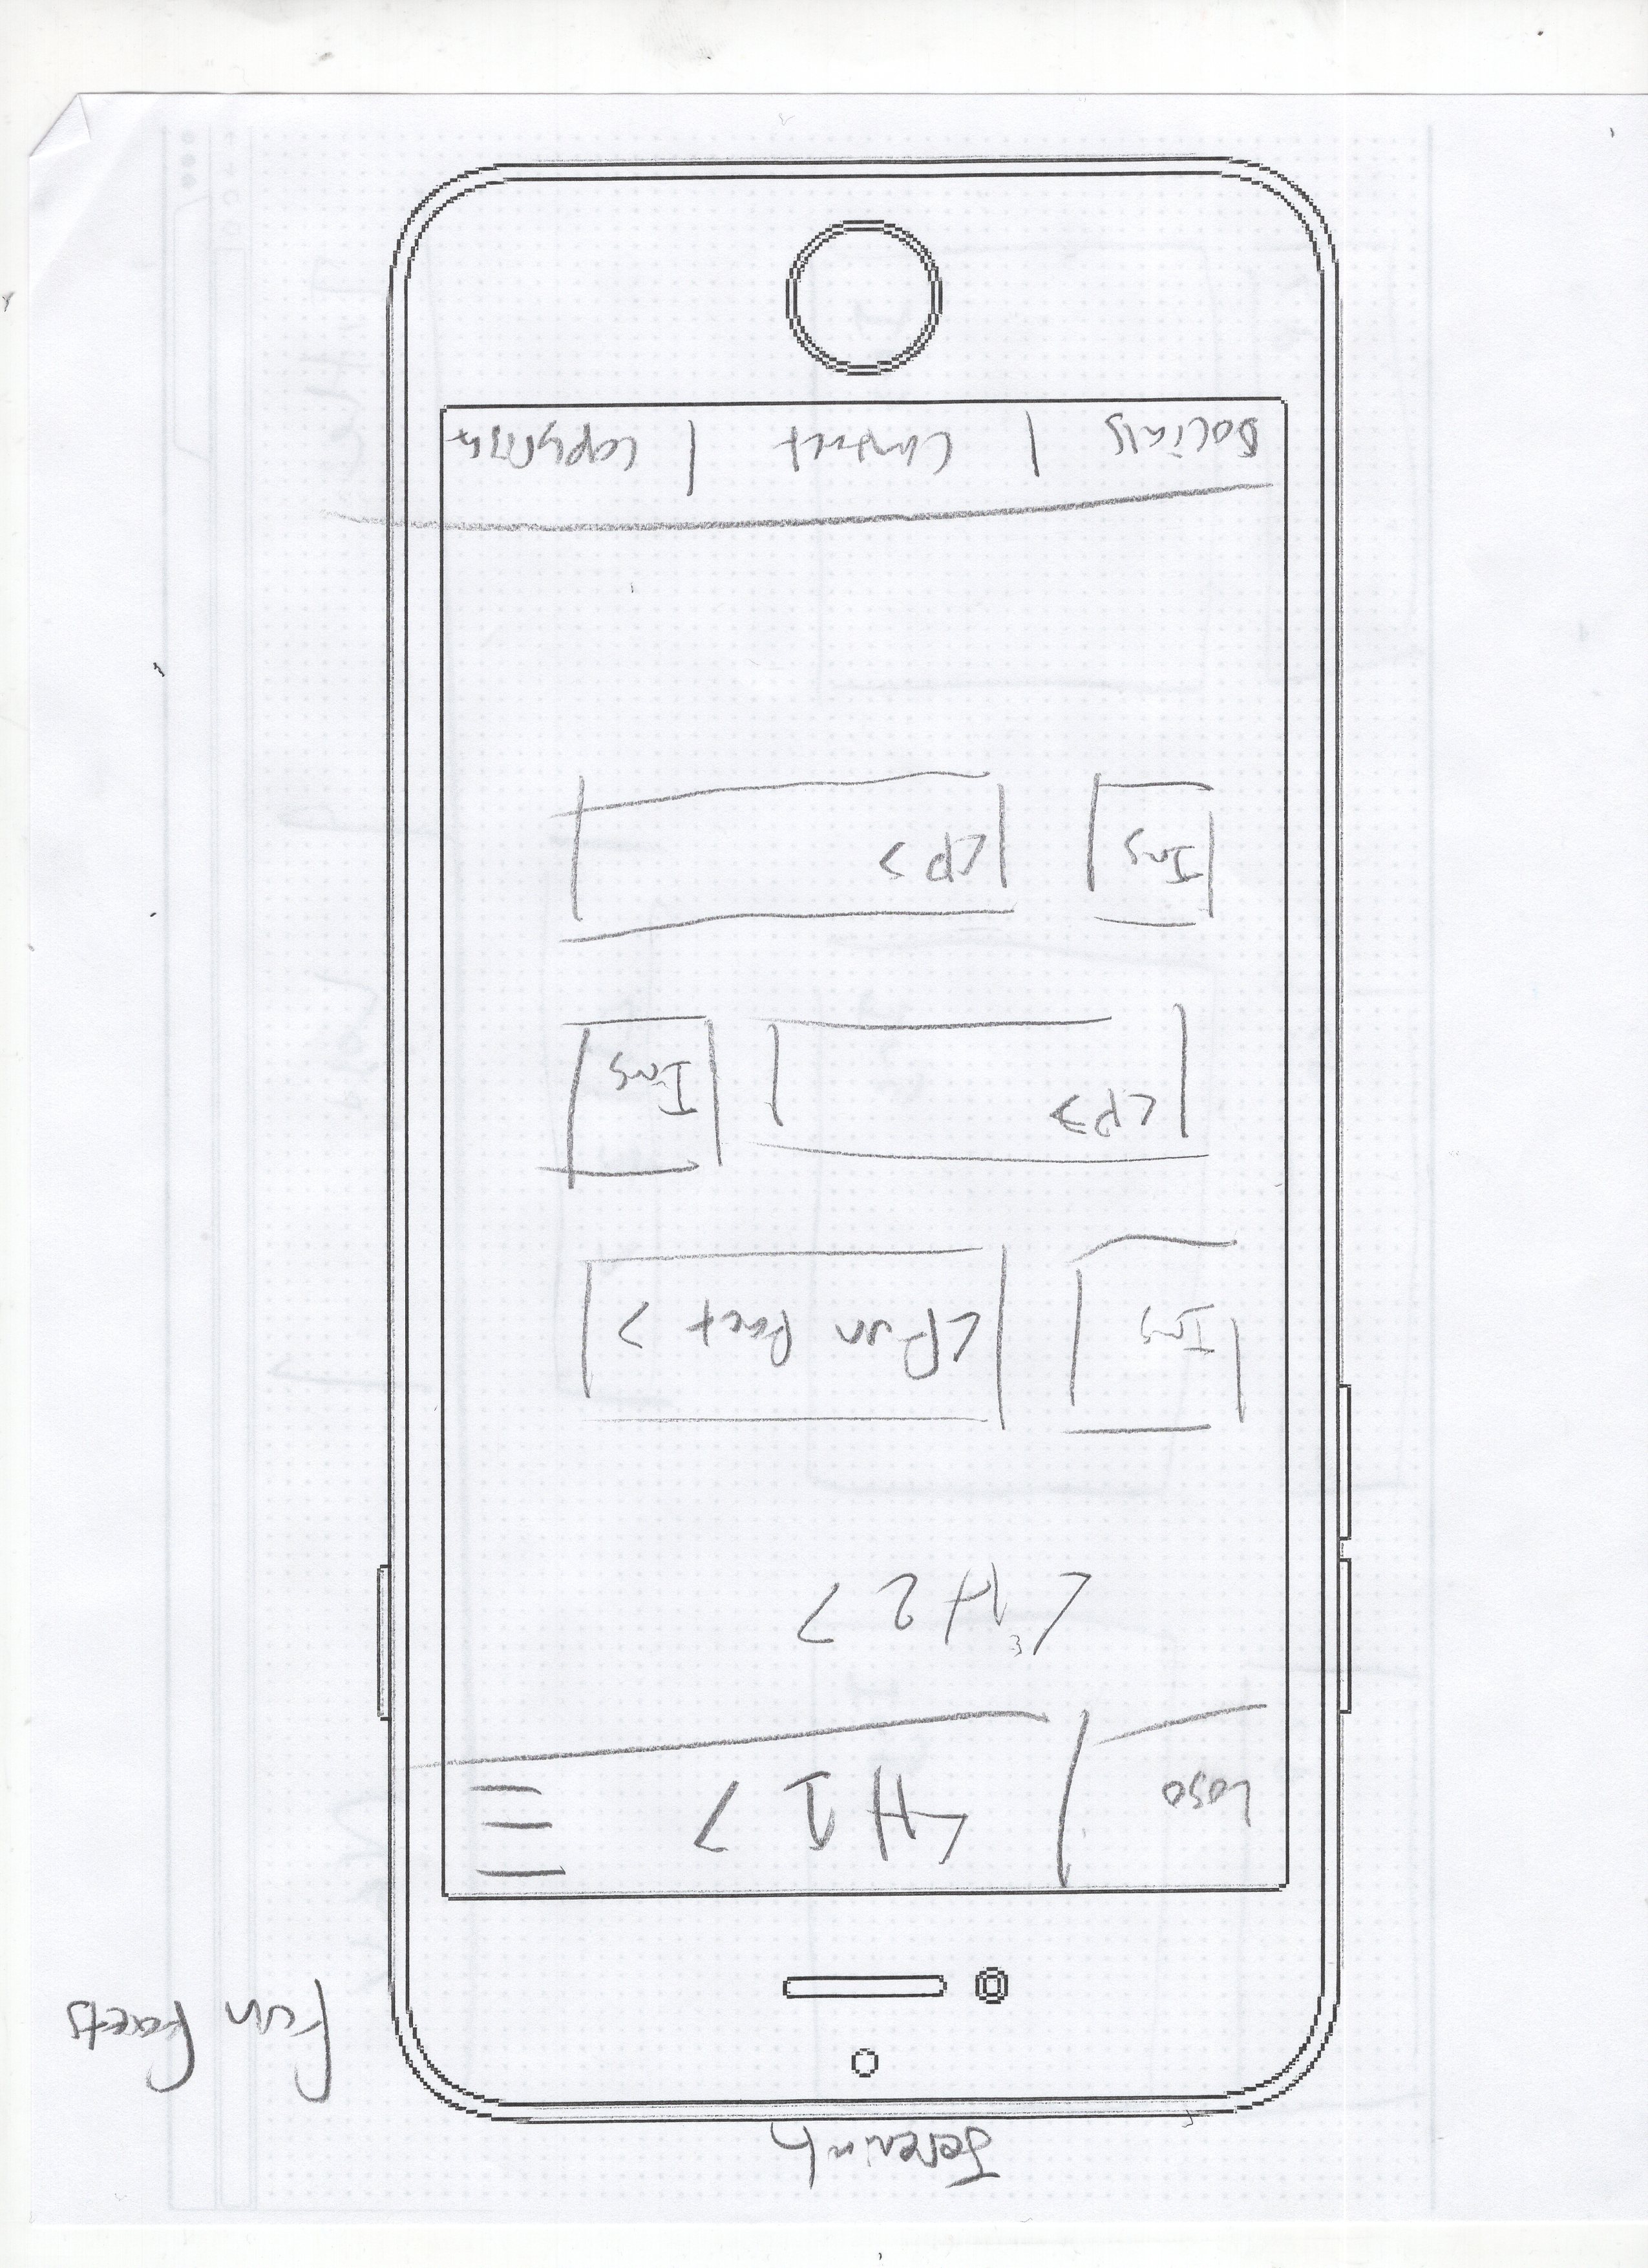 Jeremiah
Fun Facts
Logo
<H1>
<H2>
Img
<Fun Fact>
<P>
Img
Img
<P>
Socials | Contact | Copyright